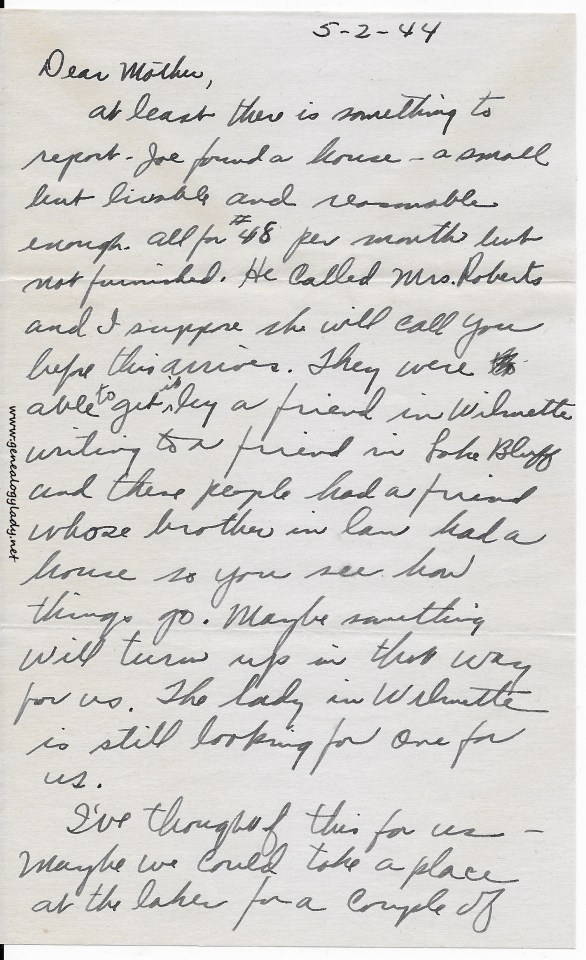 5-2-44
Dear Mother,
at least there is something to
report - Joe found a house - a small
but livable and reasonable
enough. all for $48 per month but
not furnished. He called Mrs. Roberts
and I suppose she will call you
before this arrives. They were
able to get it by a friend in Wilmette
writing to a friend in Lake Bluff
and these people had a friend
whose brother in law had a
house so you see how
things go. Maybe something
will turn up in that way
for us. The lady in Wilmette
is still looking for one for
us.
I've thought of this for us -
Maybe we could take a place
at the lakes for a couple of
www.genealogylady.net